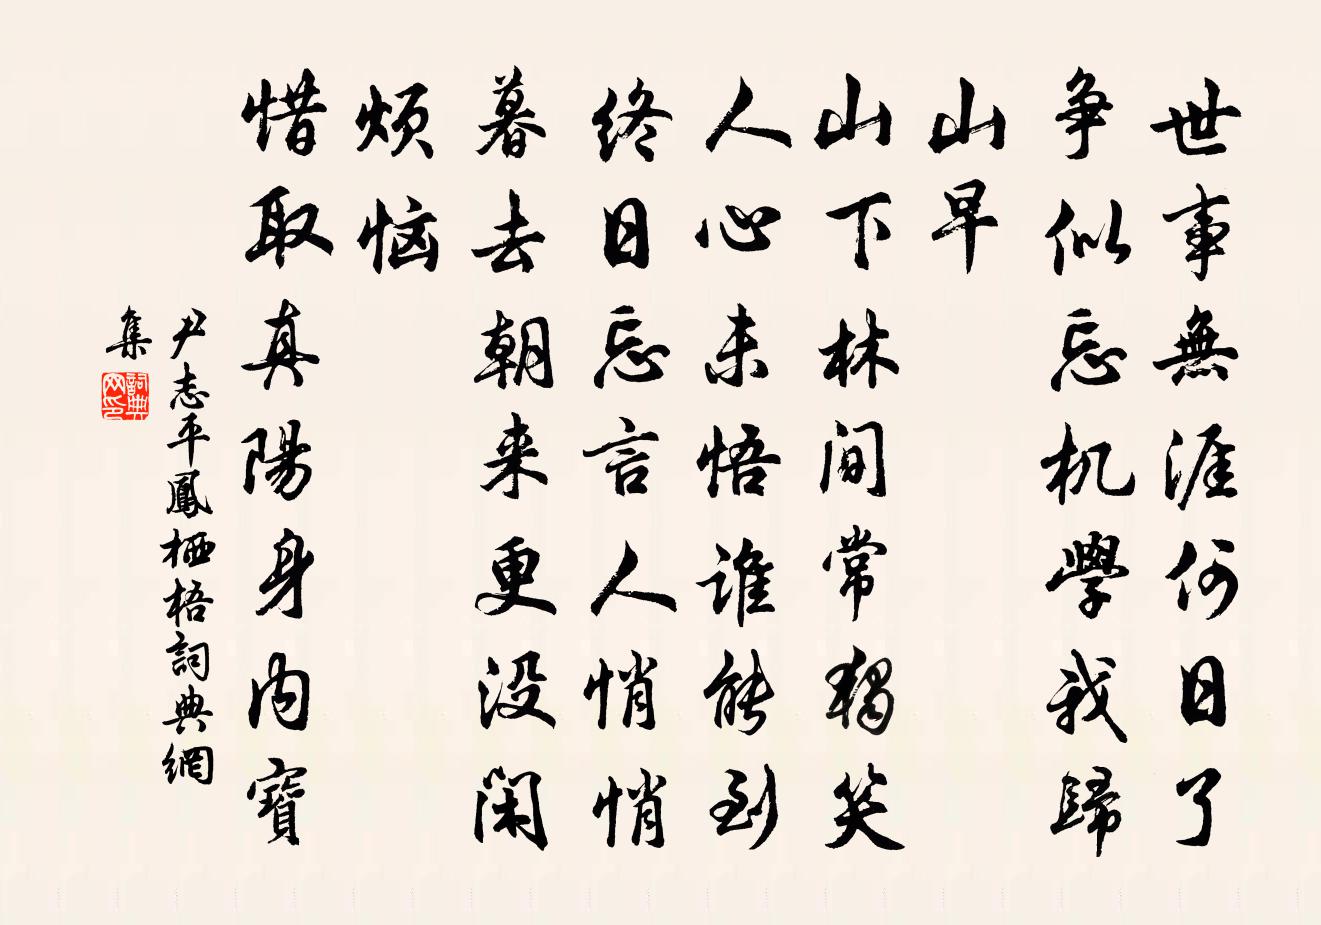 世事無涯何日了
争似忘机學我歸
山早
山下林间常獨笑
人心未悟谁能到
终日忘言人悄悄
暮去朝来更没闲
烦恼
惜取真陽身内寶
尹志平鳳栖梧詞典網
集
詞典
网印